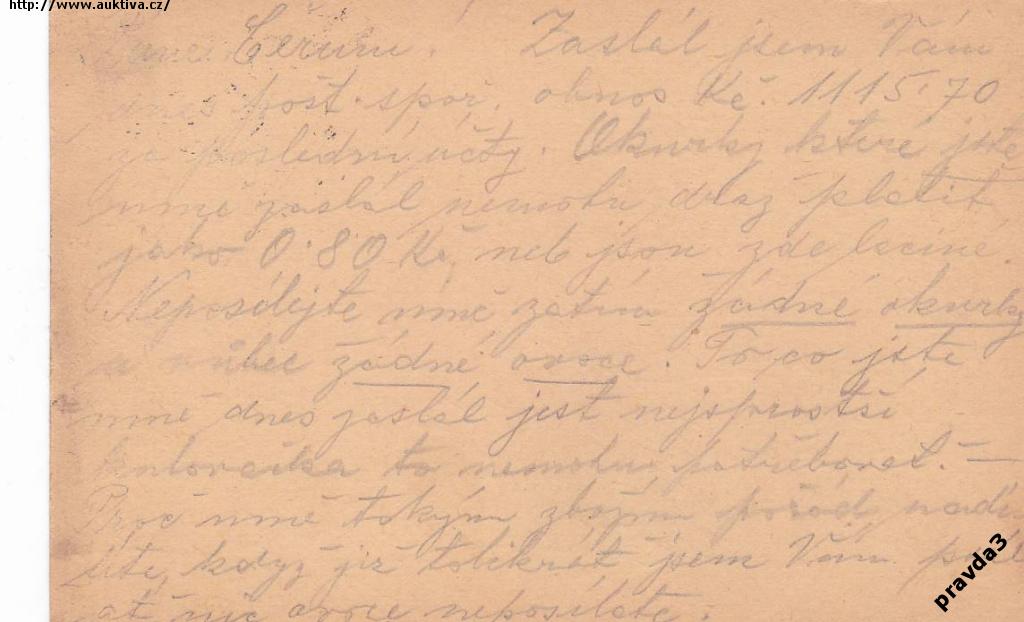 http://www.auktiva.cz/
Zaslal jsem Vám
dnes pošt. spoř. obnos Kč. 1115·70
za poslední účty. Okurky které jste
mně zaslal nemohu draž platit
jako 0·80 Kč, neb jsou zde laciné.
Neposílejte mně zatím žádné okurky
a vůbec žádné ovoce. To co jste
mně dnes zaslal jest nejsprostší
to nemohu potřebovat. —
Proč mně takým zbožím pořád
když již tolikrát jsem Vám
ať nic ovoce neposíláte.
pravda3